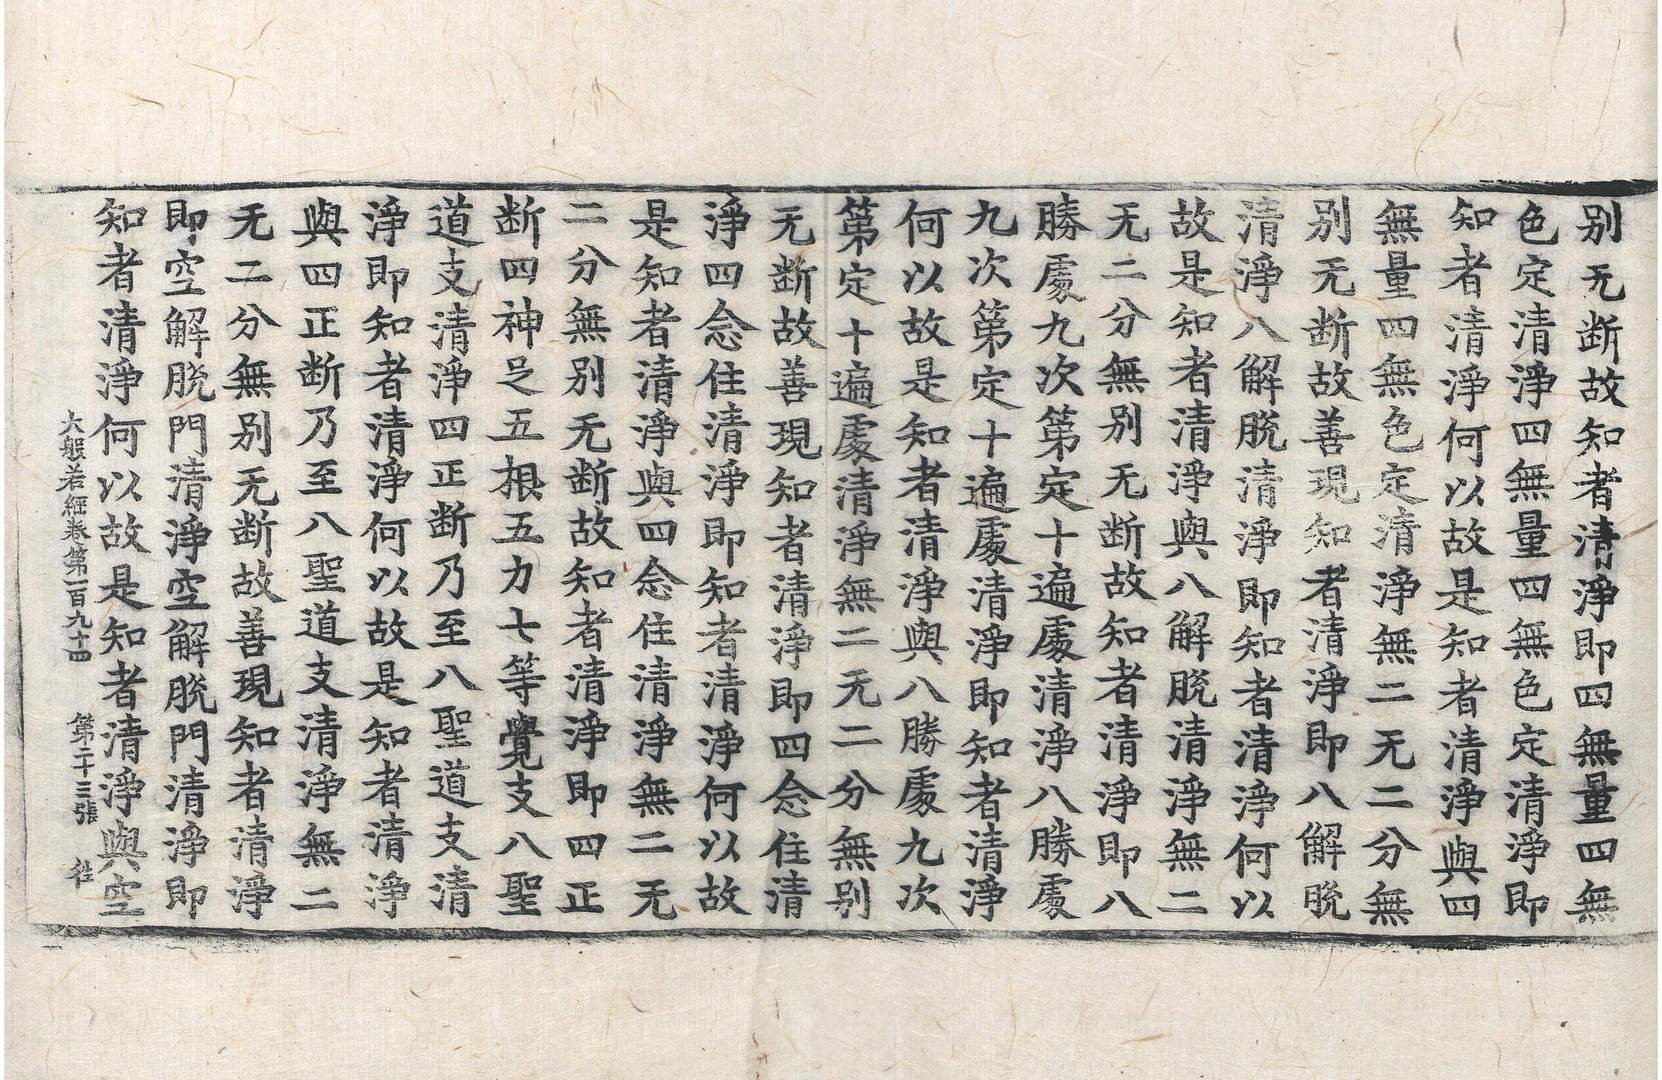 别无断故知者清淨即四無量四無
色定清淨四無量四無色定清淨即
知者清淨何以故是知者清淨與四
無量四無色定清淨無二无二分無
别无断故善現知者清淨即八解脫
清淨八解脫清淨即知者清淨何以
故是知者清淨與八解脫清淨無二
无二分無别无断故知者清淨即八
勝處九次第定十遍處清淨八勝處
九次第定十遍處清淨即知者清淨
何以故是知者清淨與八勝處九次
第定十遍處清淨無二无二分無别
无断故善現知者清淨即四念住清
淨四念住清淨即知者清淨何以故
是知者清淨與四念住清淨無二无
二分無别无断故知者清淨即四正
断四神足五根五力七等覺支八聖
道支清淨四正断乃至八聖道支清
淨即知者清淨何以故是知者清淨
與四正断乃至八聖道支清淨無二
无二分無别无断故善現知者清淨
即空解脫門清淨空解脫門清淨即
知者清淨何以故是知者清淨與空
大般若經卷第一百九十四 第二十三張